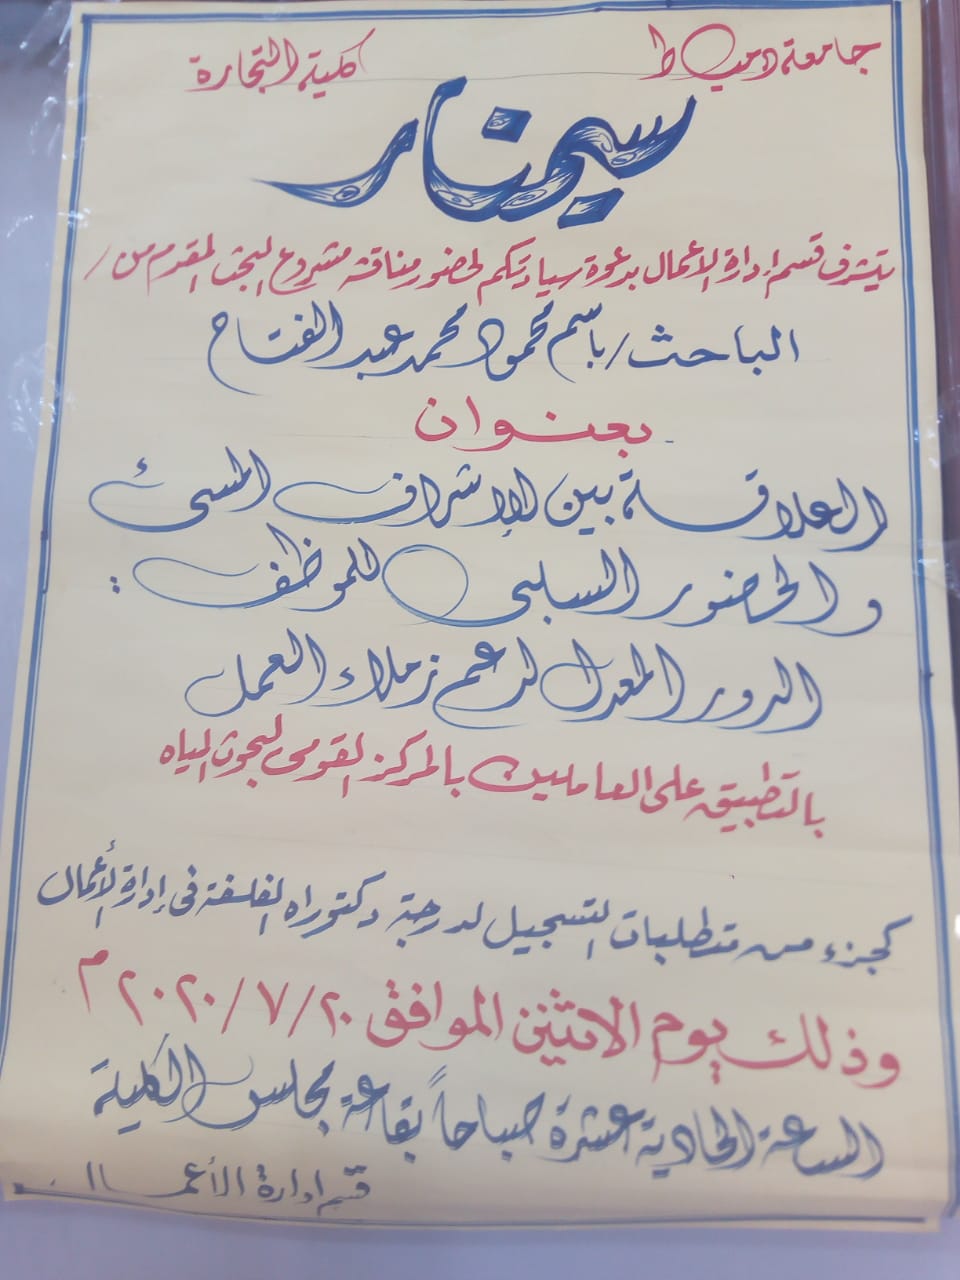 جامعة دمياط
كلية التجارة
سيمنار
يتشرف قسم إدارة الأعمال بدعوة سيادتكم لحضور مناقشة مشروع البحث المقدم من /
الباحث / باسم محمود محمد عبد الفتاح
بعنوان
العلاقة بين الإشراف المسئ
والحضور السلبى للموظف :
الدور المعدل لدعم زملاء العمل
بالتطبيق على العاملين بالمركز القومى لبحوث المياه
كجزء من متطلبات التسجيل لدرجة دكتوراه الفلسفة فى إدارة الأعمال
وذلك يوم الاثنين الموافق ٢٠/٧/٢٠٢٠ م
الساعة الحادية عشرة صباحاً بقاعة مجلس الكلية
قسم إدارة الأعمال